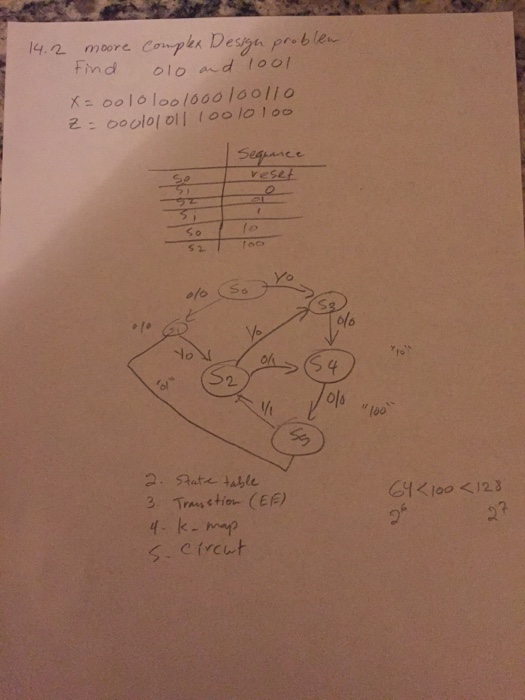 14.2 moore Complex Design problem
Find 010 and 1001
X = 00101001000100110
Z = 0001010110010100
Sequence
S0 reset
S1 0
S2 01
S1 1
S0 10
S2 100
S0
1/0
0/0
S3
0/0
S1
1/0
0/0
1/0
"10"
S2
0/1
S4
"01"
0/0
"100"
1/1
S5
2. State table
3 Transtion (EE)
4. k-map
5. Circut
64<100<128
2^6 2^7